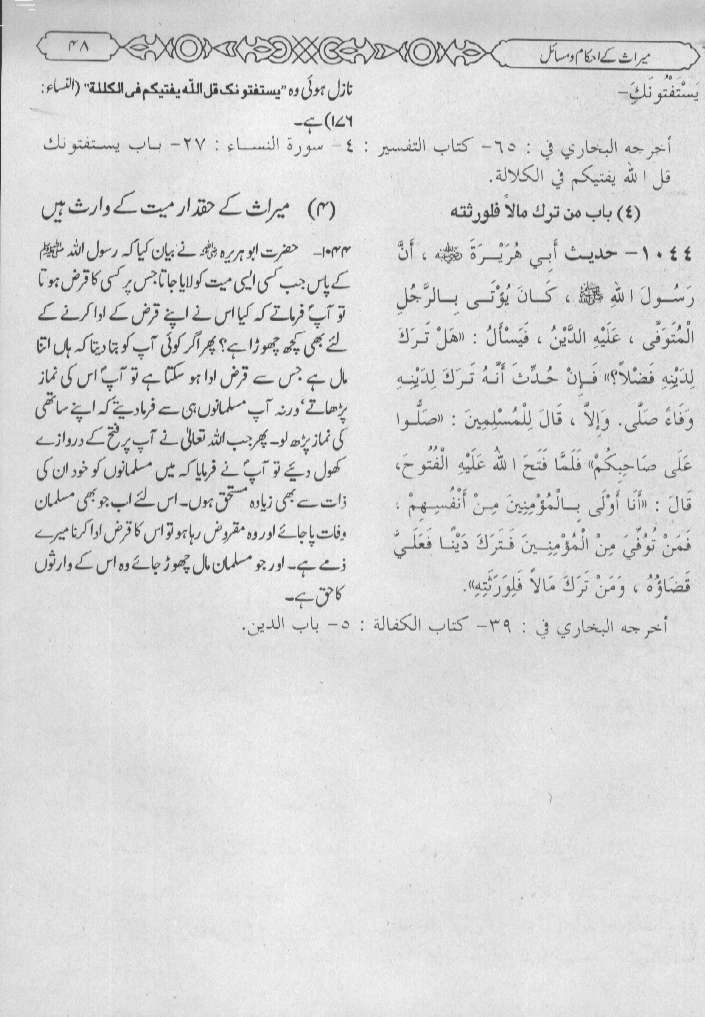 میراث کے احکام و مسائل
۴۸
یَسْتَفْتُونَكَ-
نازل ہوئی وہ ”یستفتونک قل اللہ یفتیکم فی الکللة“ (النساء:
۱۷۶) ہے۔
أخرجه البخاري في : ٦٥- كتاب التفسير : ٤- سورة النساء : ٢٧- باب يستفتونك
قل الله يفتيكم في الكلالة.
(٤) باب من ترك مالاً فلورثته
١٠٤٤- حديث أَبِي هُرَيْرَةَ ﷺ ، أَنَّ
رَسُولَ اللهِ ﷺ ، كَانَ يُؤْتَى بِالرَّجُلِ
الْمُتَوَفَّى ، عَلَيْهِ الدَّيْنُ ، فَيَسْأَلُ : «هَلْ تَرَكَ
لِدَيْنِهِ فَضْلاً؟» فَإِنْ حُدِّثَ أَنَّهُ تَرَكَ لِدَيْنِهِ
وَفَاءً صَلَّى. وَإِلاَّ ، قَالَ لِلْمُسْلِمِينَ : «صَلُّوا
عَلَى صَاحِبِكُمْ» فَلَمَّا فَتَحَ اللهُ عَلَيْهِ الْفُتُوحَ،
قَالَ : «أَنَا أَوْلَى بِالْمُؤْمِنِينَ مِنْ أَنْفُسِهِمْ ،
فَمَنْ تُوُفِّيَ مِنَ الْمُؤْمِنِينَ فَتَرَكَ دَيْنًا فَعَلَيَّ
قَضَاؤُهُ ، وَمَنْ تَرَكَ مَالاً فَلِوَرَثَتِهِ».
(۴) میراث کے حقدار میت کے وارث ہیں
۱۰۴۴- حضرت ابو ہریرہ نے بیان کیا کہ رسول اللہ ﷺ
کے پاس جب کسی ایسی میت کو لایا جاتا جس پر کسی کا قرض ہوتا
تو آپؐ فرماتے کہ کیا اس نے اپنے قرض کے ادا کرنے کے
لئے بھی کچھ چھوڑا ہے؟ پھر اگر کوئی آپ کو بتا دیتا کہ ہاں اتنا
مال ہے جس سے قرض ادا ہو سکتا ہے تو آپؐ اس کی نماز
پڑھاتے‘ ورنہ آپ مسلمانوں ہی سے فرما دیتے کہ اپنے ساتھی
کی نماز پڑھ لو۔ پھر جب اللہ تعالیٰ نے آپ پر فتح کے دروازے
کھول دیئے تو آپؐ نے فرمایا کہ میں مسلمانوں کو خود ان کی
ذات سے بھی زیادہ مستحق ہوں۔ اس لئے اب جو بھی مسلمان
وفات پا جائے اور وہ مقروض رہا ہو تو اس کا قرض ادا کرنا میرے
ذمے ہے۔ اور جو مسلمان مال چھوڑ جائے وہ اس کے وارثوں
کا حق ہے۔
أخرجه البخاري في : ٣٩- كتاب الكفالة : ٥- باب الدين.